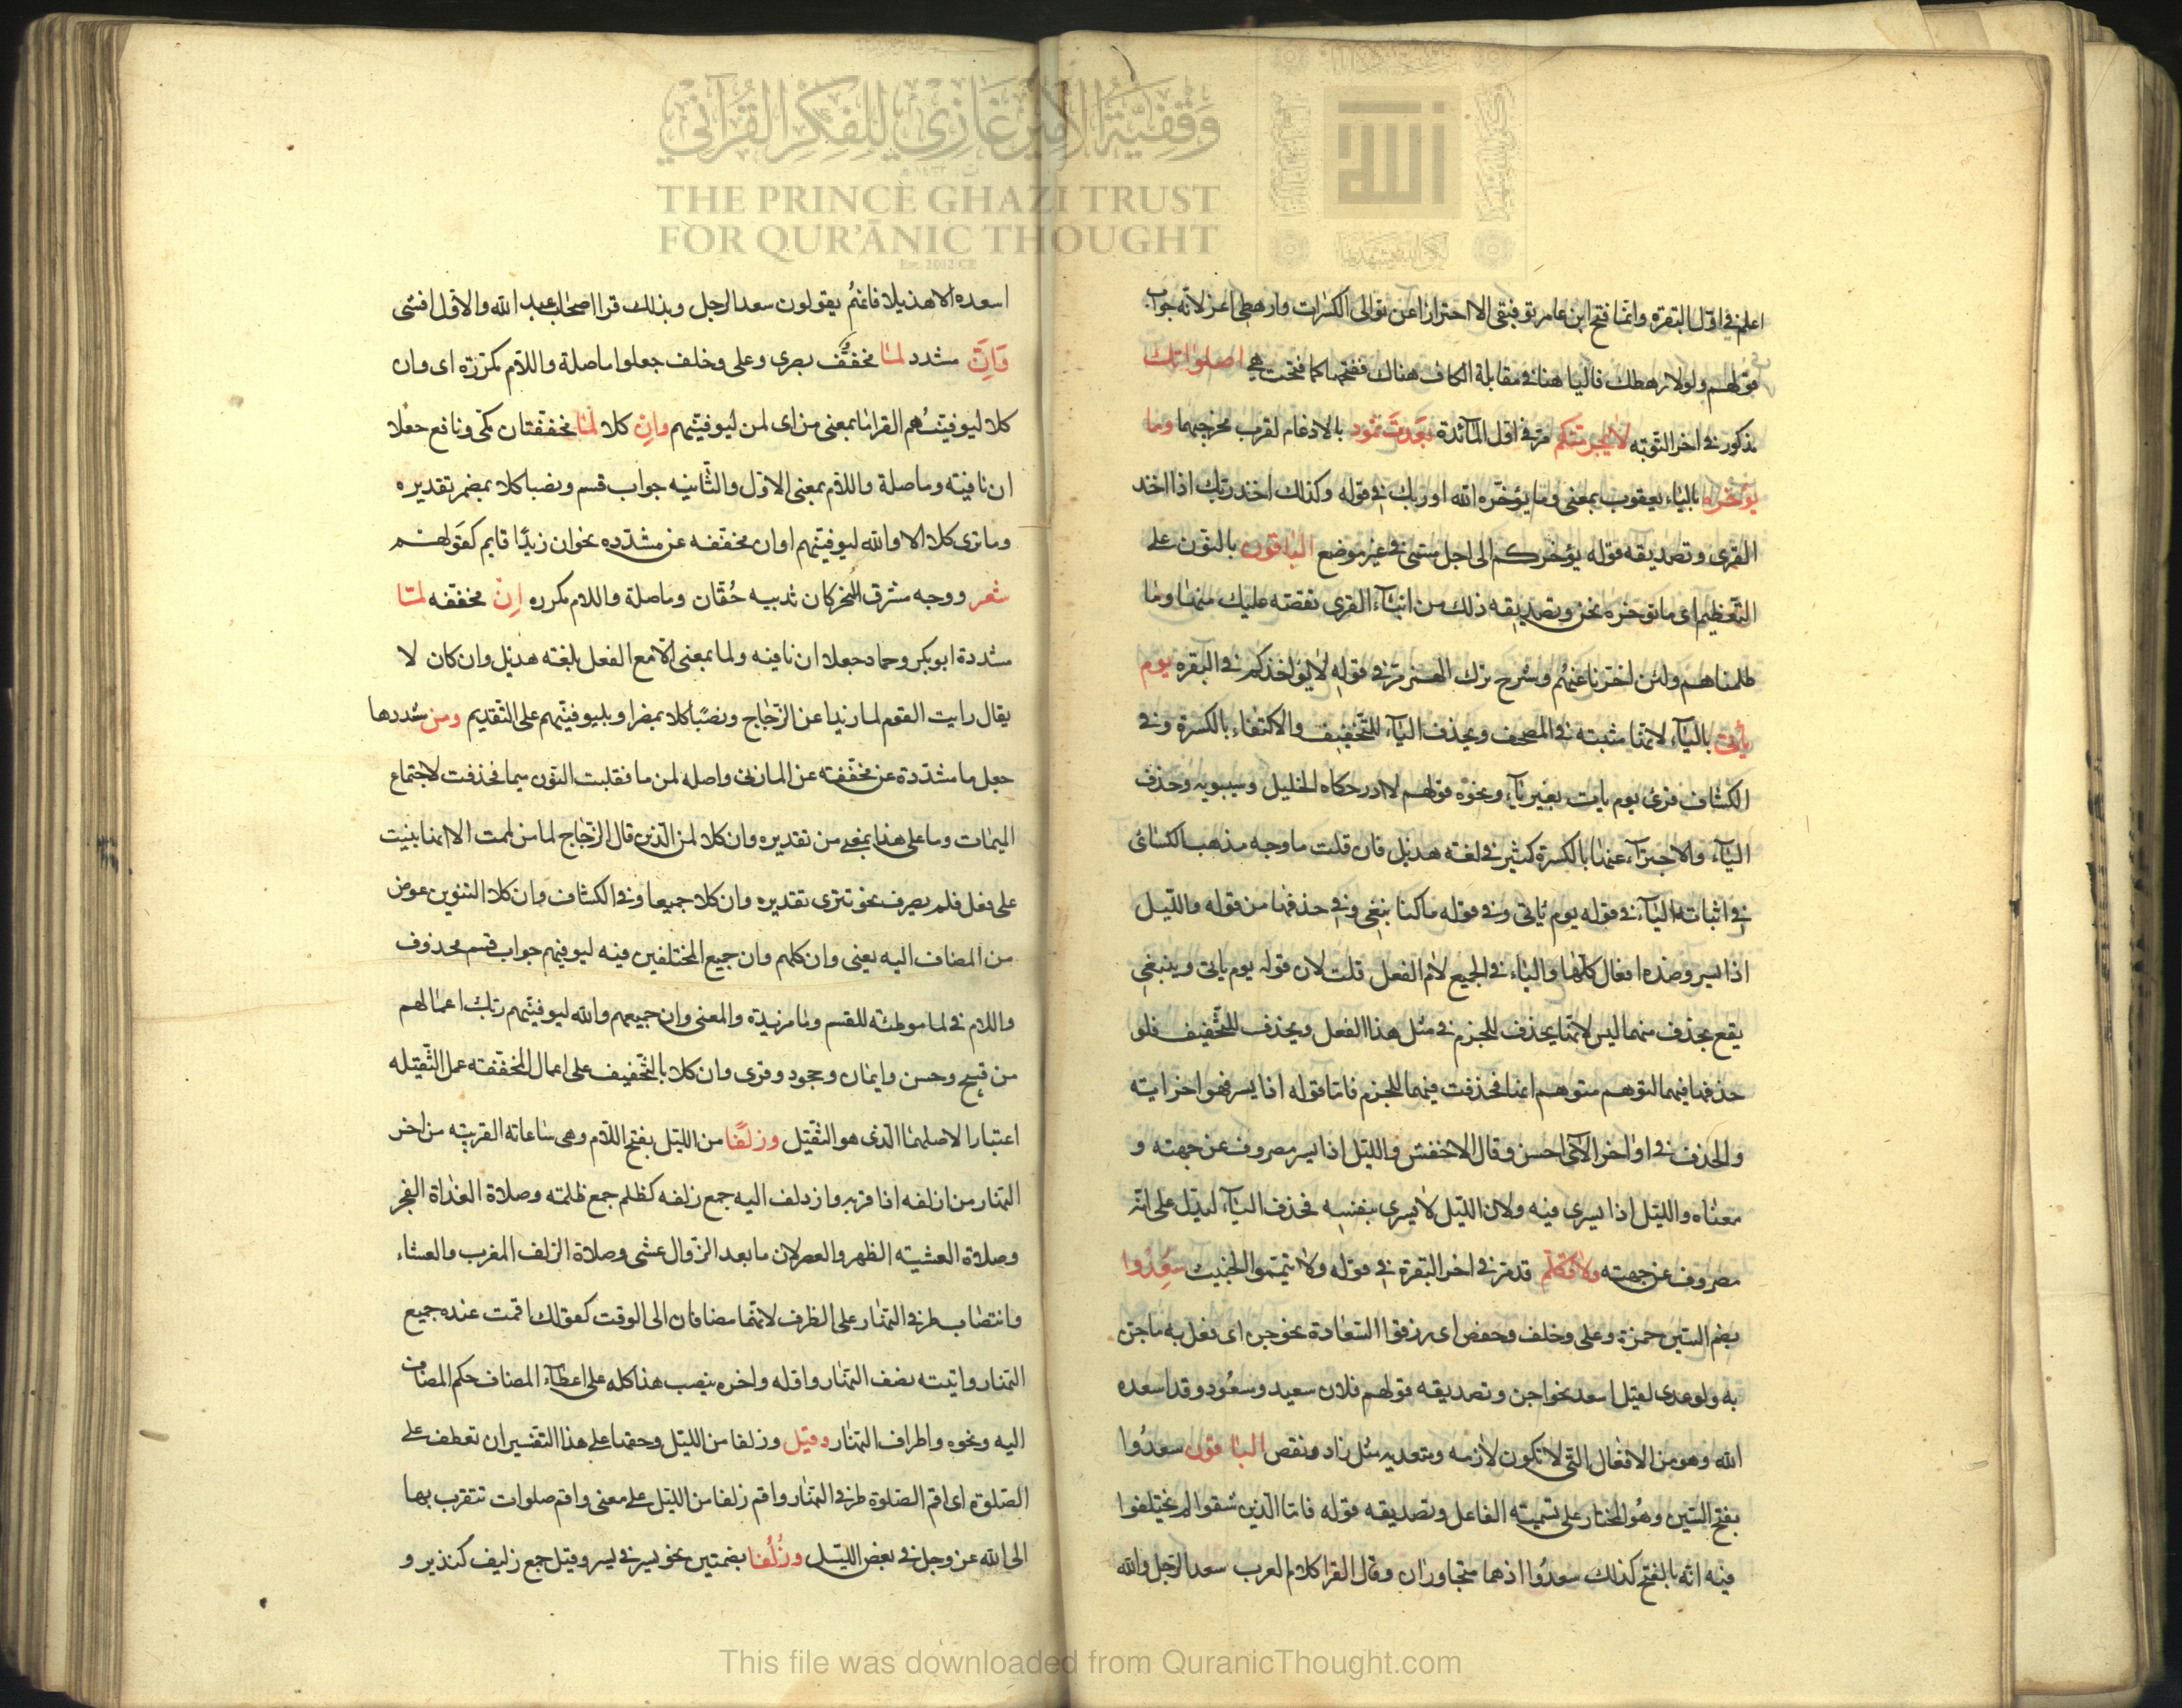 وقفية الأمير غازي للفكر القرآني
THE PRINCE GHAZI TRUST
FOR QUR'ĀNIC THOUGHT
Est. 2012 CE
اعلم في اول البقره وانما فتح ابن عامر توفيقى الا احترازا عن توالى الكسرات وارهطى اعز لانه جواب
قولهم ولولا رهطك فالياء هنا في مقابلة الكاف هناك ففتحها كما فتحت هي اصلواتك
مذكور في اخر التوبه لا يجرمنكم مر في اول المآئدة بعدت ثمود بالادغام لقرب مخرجيهما وما
يؤخره بالياء يعقوب بمعنى وما يؤخره الله او ربك في قوله وكذلك اخذ ربك اذا اخذ
القرى وتصديقه قوله يؤخركم الى اجل مسمى في غير موضع الباقون بالنون على
التعظيم اى ما نوخره نحن وتصديقه ذلك من انباء القرى نقصه عليك منها وما
ظلمناهم ولئن اخرنا عنهم وشرح ترك الهمز مر في قوله لا يؤاخذكم في البقره يوم
يأتى بالياء لانها مثبته في المصحف وبحذف الياء للتخفيف والاكتفاء بالكسرة وفي
الكشاف قرئ يوم يات بغير ياء ونحوه قولهم لا ادر حكاه الخليل وسيبويه وحذف
الياء والاجتزاء عنها بالكسرة كثير في لغة هذيل فان قلت ما وجه مذهب الكسائى
في اثباته الياء في قوله يوم ياتى وفي قوله ما كنا نبغى وفي حذفها من قوله والليل
اذا يسر وهذه افعال كلها والياء في الجميع لام الفعل قلت لان قوله يوم ياتى وينبغى
يقع بحذف منهما اليس لانها يحذف للجزم في مثل هذا الفعل ويحذف للتخفيف فلو
حذفها فيهما لتوهم متوهم انما فحذفت فيهما للجزم فاما قوله اذا يسر فهو اخر ايته
والحذف في اواخر الآى احسن وقال الاخفش والليل اذا يسر مصروف عن جهته و
معناه والليل اذا يسرى فيه ولان الليل لا يسرى بنفسه فحذف الياء ليدل على انه
مصروف عن جهته ولا تكلم قد مر في اخر البقرة في قوله ولا تيمموا الخبيث سعدوا
بضم السين حمزة وعلى وخلف وحفص اى رزقوا السعادة نحو جن اى فعل به ما جن
به ولو عدى لقيل اسعد نحو اجن وتصديقه قولهم فلان سعيد ومسعود وقد اسعده
الله وهو من الافعال التى لا تكون لازمه ومتعديه مثل زاد ونقص الباقون سعدوا
بفتح السين وهو المختار على تسمية الفاعل وتصديقه قوله فاما الذين شقوا لم يختلفوا
فيه انه بالفتح كذلك سعدوا اذ هما متجاوران وقال الفرا كلام العرب سعد الرجل والله
اسعده الا هذيلا فانهم يقولون سعد الرجل وبذلك قرا اصحاب عبد الله والاول افشى
وان مشدد لما مخفف بصرى وعلى وخلف جعلوا ما صلة واللام مكررة اى وان
كلا ليوفينهم الفرا ما بمعنى من اى لمن ليوفينهم وان كلا لما مخففتان مكى ونافع جعلا
ان نافيته وما صلة واللام بمعنى الا والثانيه جواب قسم ونصبا كلا بمضمر تقديره
وما نرى كلا الا والله ليوفينهم او ان مخففه عن مشدده نحو ان زيدا قايم كقولهم
شعر ووجه مشرق النحر كان ثدييه حقان وما صلة واللام مكرره ان مخففه لما
مشددة ابو بكر وحماد جعلا ان نافيه ولما بمعنى الا مع الفعل بلغة هذيل وان كان لا
يقال رايت القوم لما زيدا عن الزجاج ونصبا كلا بمضمر او بليوفينهم على التقديم ومن شددها
جعل ما مشددة عن مخففه عن المازنى واصله لمن ما فقلبت النون ميما فحذفت لاجتماع
الميمات وما على هذا بمعنى من تقديره وان كلا لمن الذين قال الزجاج لما من لممت الا انها بنيت
على فعل فلم يصرف نحو تترى تقديره وان كلا جميعا وفي الكشاف وان كلا التنوين عوض
من المضاف اليه يعنى وان كلهم وان جميع المختلفين فيه ليوفينهم جواب قسم محذوف
واللام في لما موطئه للقسم وما مزيدة والمعنى وان جميعهم والله ليوفينهم ربك اعمالهم
من قبيح وحسن وايمان وجحود وقرى وان كلا بالتخفيف على اعمال المخففه عمل الثقيله
اعتبارا لاصلها الذى هو الثقيل وزلفا من الليل بفتح اللام وهى ساعاته القريبه من اخر
النهار من ازلفه اذا قربه وازدلف اليه جمع زلفه كظلم جمع ظلمه وصلاة الغداة الفجر
وصلاة العشيته الظهر والعصر لان ما بعد الزوال عشى وصلاة الزلف المغرب والعشاء
وانتصاب طرفي النهار على الظرف لانهما مضافان الى الوقت كقولك اقمت عنده جميع
النهار واتيته نصف النهار واوله واخره بنصب هذا كله على اعطاء المضاف حكم المضاف
اليه ونحوه واطراف النهار وقيل وزلفا من الليل وحقها على هذا التفسير ان تعطف على
الصلوة اى اقم الصلوة طرفي النهار واقم زلفا من الليل على معنى واقم صلوات تتقرب بها
الى الله عز وجل في بعض الليل وزلفا بضمتين نحو يسر في يسر وقيل جمع زليف كنذير و
This file was downloaded from QuranicThought.com